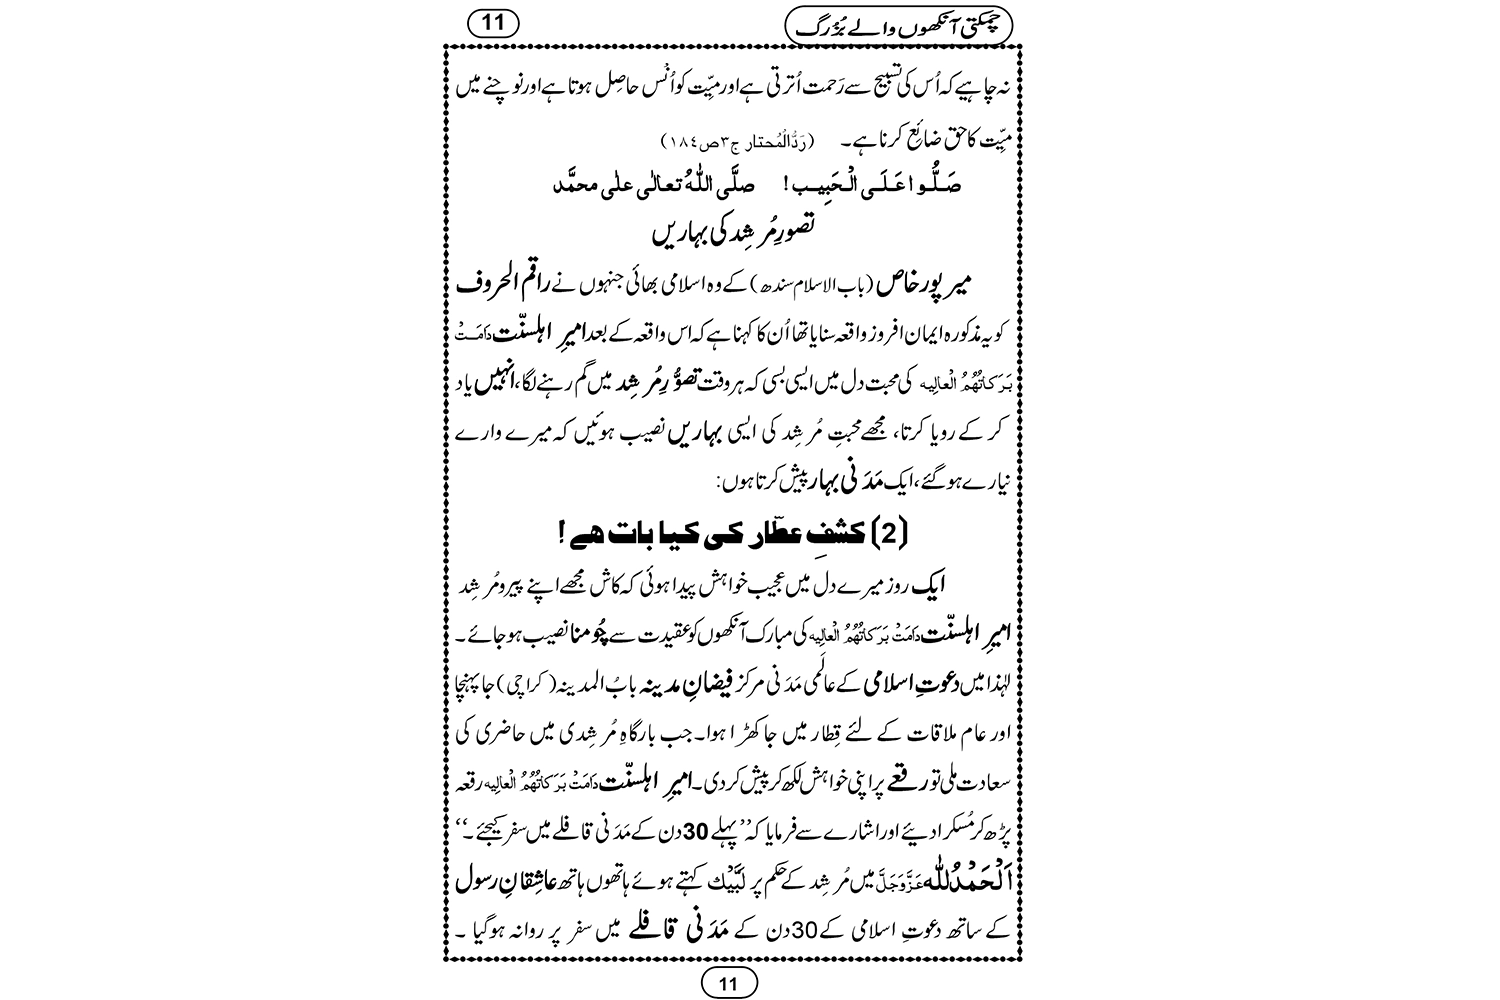 چمکتی آنکھوں والے بُزُرگ
11
نہ چاہیے کہ اُس کی تسبیح سے رَحمت اُترتی ہے اور میِّت کو اُنْس حاصِل ہوتا ہے اور نوچنے میں
میِّت کا حق ضائِع کرنا ہے۔ (رَدُّالْمُحتار ج۳ص۱۸٤)
صَلُّوا عَلَی الْحَبِیب! صلَّی اللّٰهُ تعالٰی علٰی محمَّد
تصورِ مُرشِد کی بہاریں
میر پور خاص (باب الاسلام سندھ) کے وہ اسلامی بھائی جنہوں نے راقم الحروف
کو یہ مذکورہ ایمان افروز واقعہ سنایا تھا اُن کا کہنا ہے کہ اس واقعہ کے بعد امیرِ اہلسنّت دَامَتْ
بَرَکاتُهُمُ الْعالِیه کی محبت دل میں ایسی بسی کہ ہر وقت تصوُّرِ مُرشِد میں گم رہنے لگا، انہیں یاد
کر کے رویا کرتا، مجھے محبتِ مُرشِد کی ایسی بہاریں نصیب ہوئیں کہ میرے وارے
نیارے ہو گئے، ایک مَدَنی بہار پیش کرتا ہوں:
(2) کشفِ عطّار کی کیا بات ھے!
ایک روز میرے دل میں عجیب خواہش پیدا ہوئی کہ کاش مجھے اپنے پیرو مُرشِد
امیرِ اہلسنّت دَامَتْ بَرَکاتُهُمُ الْعالِیه کی مبارک آنکھوں کو عقیدت سے چُومنا نصیب ہو جائے۔
لہٰذا میں دعوتِ اسلامی کے عالَمی مَدَنی مرکز فیضانِ مدینہ بابُ المدینہ (کراچی) جا پہنچا
اور عام ملاقات کے لئے قِطار میں جا کھڑا ہوا۔ جب بارگاہِ مُرشِدی میں حاضری کی
سعادت ملی تو رقعے پر اپنی خواہش لکھ کر پیش کر دی۔ امیرِ اہلسنّت دَامَتْ بَرَکاتُهُمُ الْعالِیه رقعہ
پڑھ کر مُسکرا دیئے اور اشارے سے فرمایا کہ ’’پہلے 30 دن کے مَدَنی قافلے میں سفر کیجئے۔‘‘
اَلْحَمْدُلِلّٰه عَزَّوَجَلَّ میں مُرشِد کے حکم پر لَبَّیْک کہتے ہوئے ہاتھوں ہاتھ عاشِقانِ رسول
کے ساتھ دعوتِ اسلامی کے 30 دن کے مَدَنی قافلے میں سفر پر روانہ ہو گیا۔
11